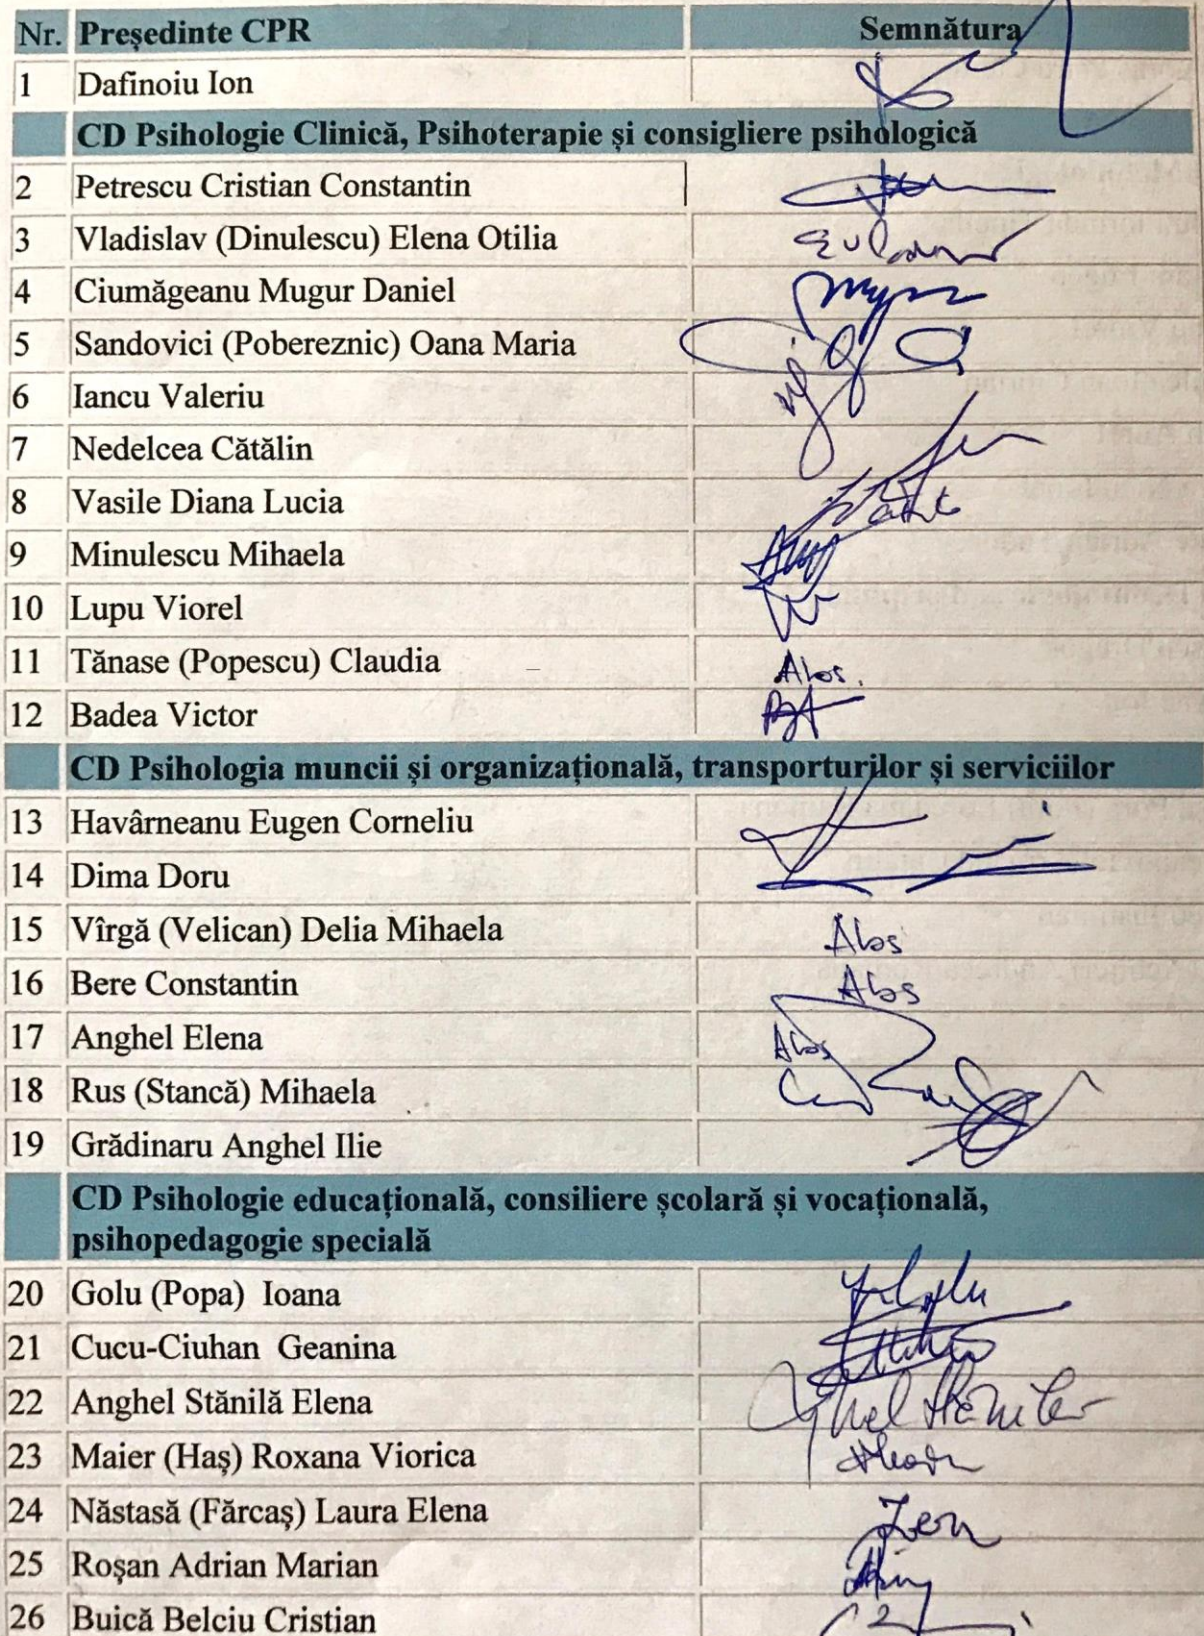 Nr. Președinte CPR Semnătura
1 Dafinoiu Ion
CD Psihologie Clinică, Psihoterapie și consigliere psihologică
2 Petrescu Cristian Constantin
3 Vladislav (Dinulescu) Elena Otilia
4 Ciumăgeanu Mugur Daniel
5 Sandovici (Pobereznic) Oana Maria
6 Iancu Valeriu
7 Nedelcea Cătălin
8 Vasile Diana Lucia
9 Minulescu Mihaela
10 Lupu Viorel
11 Tănase (Popescu) Claudia Abs.
12 Badea Victor
CD Psihologia muncii și organizațională, transporturilor și serviciilor
13 Havârneanu Eugen Corneliu
14 Dima Doru
15 Vîrgă (Velican) Delia Mihaela Abs
16 Bere Constantin Abs
17 Anghel Elena Abs
18 Rus (Stancă) Mihaela
19 Grădinaru Anghel Ilie
CD Psihologie educațională, consiliere școlară și vocațională,
psihopedagogie specială
20 Golu (Popa) Ioana
21 Cucu-Ciuhan Geanina
22 Anghel Stănilă Elena
23 Maier (Haș) Roxana Viorica
24 Năstasă (Fărcaș) Laura Elena
25 Roșan Adrian Marian
26 Buică Belciu Cristian